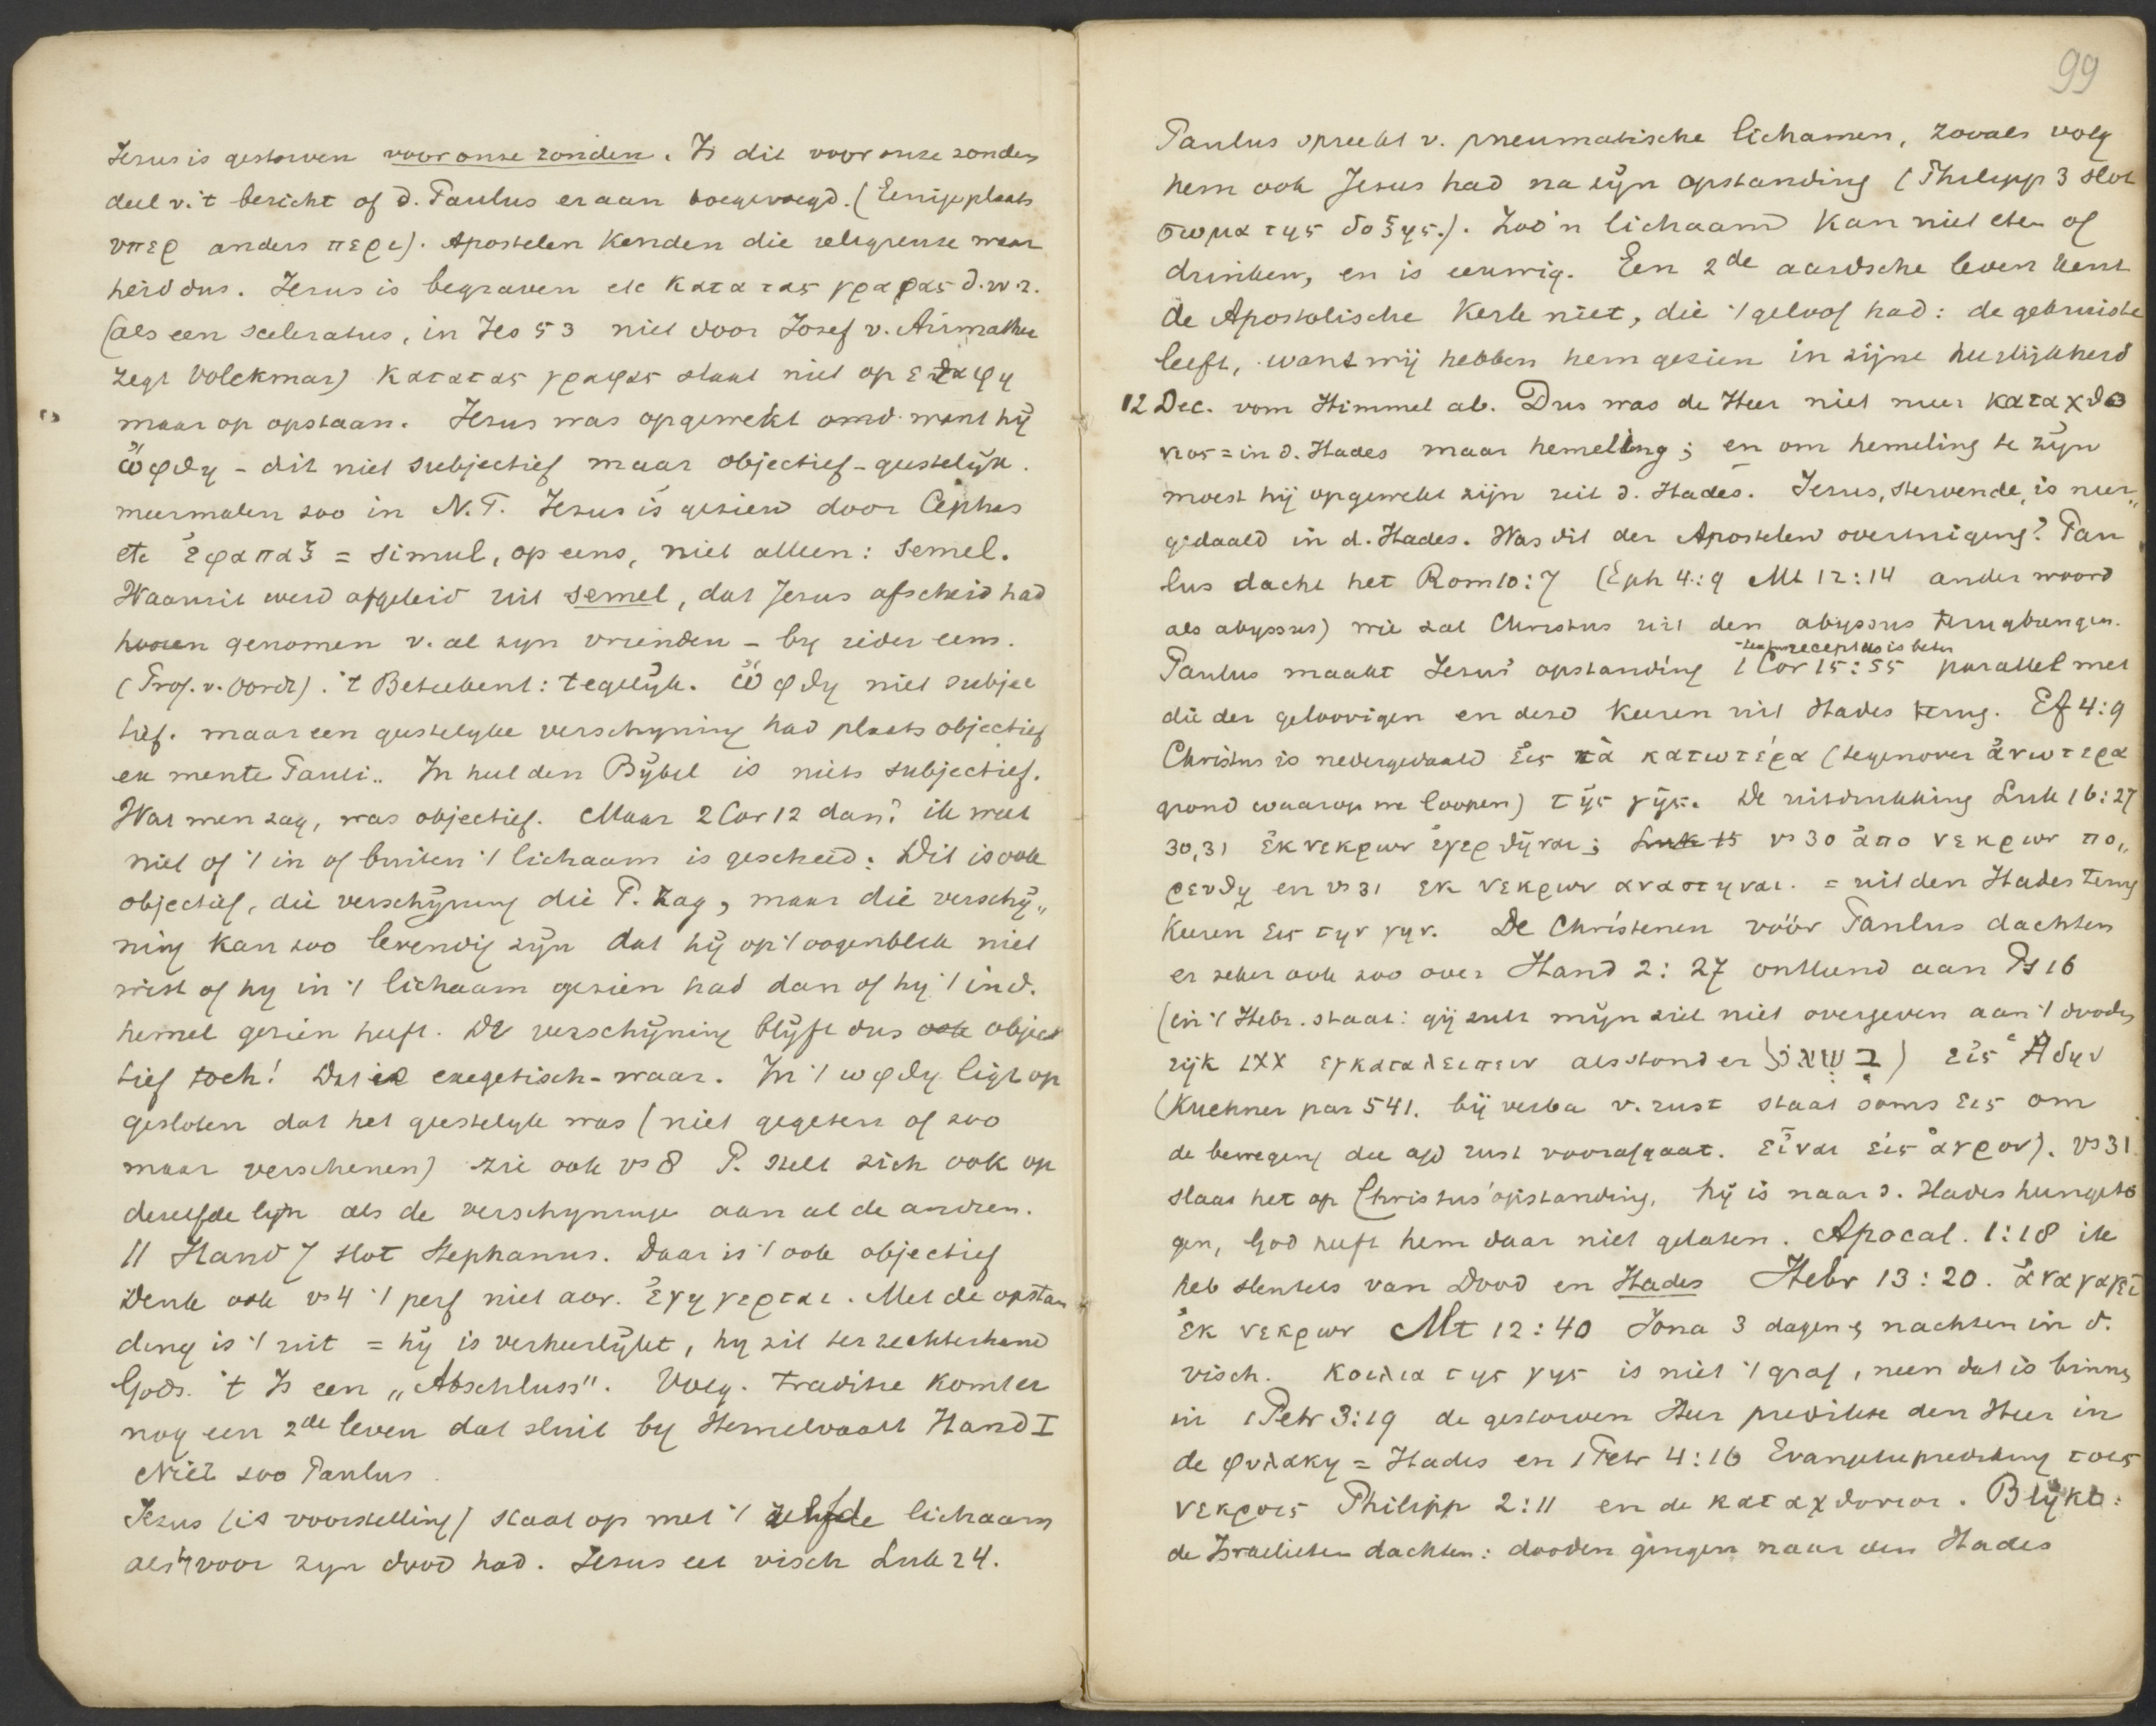 Jesus is gestorven voor onze zonden. Is dit voor onze zonden
deel v. 't bericht of d. Paulus er aan toegevoegd. (Eenige plaats
υπερ anders περι). Apostelen kenden die religieuse waar
heid dus. Jesus is begraven etc κατα τας γραφας d.w.z.
(als een sceleratus, in Jes 53 niet door Jozef v. Arimathea
zegt Volckmar) κατα τας γραφας slaat niet op εταφη
maar op opstaan. Jesus was opgewekt omd. want hij
ὤφθη - dit niet subjectief maar objectief-geestelijk.
meermalen zoo in N.T. Jesus is gezien door Cephas
etc ἐφαπαξ = simul, op eens, niet alleen: semel.
Waaruit werd afgeleid uit semel, dat Jesus afscheid had
genomen v. al zyn vrienden - by ieder eens.
(Prof. v. Oordt). 't Beteekent: tegelijk. ὤφθη niet subjec
tief. maar een geestelyke verschyning had plaats objectief
ex mente Pauli.. In heel den Bijbel is niets subjectief.
Wat men zag, was objectief. Maar 2 Cor 12 dan? ik weet
niet of 't in of buiten 't lichaam is geschied: Dit is ook
objectief, die verschijning die P. zag, maar die verschij„
ning kan zoo levendig zijn dat hij op 't oogenblik niet
wist of hy in 't lichaam gezien had dan of hij 't in d.
hemel gezien heeft. De verschijning blijft dus ook objec
tief toch! Dat is exegetisch-waar. In 't ωφθη ligt op
gesloten dat het geestelyk was (niet gegeten of zoo
maar verschenen) zie ook vs 8 P. stelt zich ook op
dezelfde lijn als de verschyninge aan al de andren.
11 Hand 7 slot Stephanus. Daar is 't ook objectief
Denk ook vs 4 't perf niet aor. ἐγηγερται. Met de opstan
ding is 't uit = hij is verheerlijkt, hy zit ter rechterhand
Gods. 't Is een „Abschluss". Volg. traditie komt er
nog een 2de leven dat sluit by Hemelvaart Hand I
Niet zoo Paulus.
Jezus (is voorstelling) staat op met 't zelfde lichaam
als hy voor zyn dood had. Jesus eet visch Luk 24.
99
Paulus spreekt v. pneumatische lichamen, zooals volg
hem ook Jesus had na zijn opstanding (Philipp 3 slot
σωμα της δοξης.). Zoo'n lichaam kan niet eten of
drinken, en is eeuwig. Een 2de aardsche leven kent
de Apostolische Kerk niet, die 't geloof had: de gekruiste
leeft, want wij hebben hem gezien in zijne heerlijkheid
12 Dec. vom Himmel ab. Dus was de Heer niet meer καταχθο
νιος = in d. Hades maar hemeling; en om hemeling te zijn
moest hij opgewekt zijn uit d. Hades. Jesus, stervende, is neer„
gedaald in d. Hades. Was dit der Apostelen overtuiging? Pau
lus dacht het Rom 10:7 (Eph 4:9 Mt 12:14 ander woord
als abyssus) wie zal Christus uit den abyssus terugbrengen.
textus receptus is beter
Paulus maakt Jesus' opstanding 1 Cor 15:55 parallel met
die der geloovigen en deze keeren uit Hades terug. Ef 4:9
Christus is nedergedaald ἐις τὰ κατωτέρα (tegenover ἀνωτερα
grond waarop we loopen) τῆς γῆς. De uitdrukking Luk 16:27
30,31 ἐκ νεκρων ἐγερθῆναι; Luk 15 vs 30 ἀπο νεκρων πο„
ρευθῃ en vs 31 εκ νεκρων αναστηναι. = uit den Hades terug
keeren εις την γην. De Christenen vóór Paulus dachten
er zeker ook zoo over Hand 2: 27 ontleend aan Ps 16
(in 't Hebr. staat: gij zult mijn ziel niet overgeven aan 't dooden
rijk LXX εγκαταλειπειν als stond er בִּשְׁאוֹל) εἰς Ἁδην
(Kuehner par 541. bij verba v. rust staat soms εις om
de beweging die a/d rust voorafgaat. εἶναι εἰς ἀγρον). vs 31.
slaat het op Christus' opstanding, hij is naar d. Hades heengeto
gen, God heeft hem daar niet gelaten. Apocal. 1:18 ik
heb sleutels van Dood en Hades Hebr 13:20.
ἐκ νεκρων Mt 12:40 Jona 3 dagen en nachten in d.
visch. κοιλια της γης is niet 't graf, neen dat is binnen
in 1 Petr 3:19 de gestorven Heer predikte den Heer in
de φυλακη = Hades en 1 Petr 4:16 Evangelieprediking τοις
νεκροις Philipp 2:11 en de καταχθονιοι. Blijkt:
de Israelieten dachten: dooden gingen naar den Hades